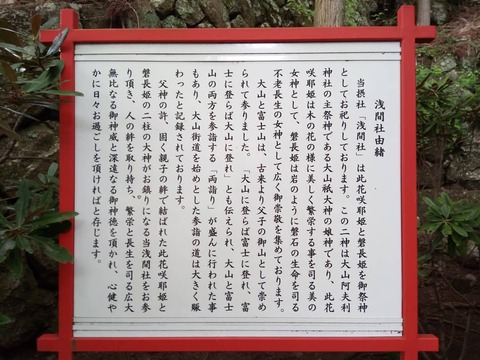 浅間社由緒
当摂社「浅間社」は此花咲耶姫と磐長姫を御祭神
としてお祀りしております。この二神は大山阿夫利
神社の主祭神である大山祇大神の娘神であり、此花
咲耶姫は木の花の様に美しく繁栄する事を司る美の
女神として、磐長姫は岩のように磐石の生命を司る
不老長生の女神として広く御崇敬を集めております。
大山と富士山は、古来より父子の御山として崇め
られて参りました。「大山に登らば富士に登れ、富
士に登らば大山に登れ」とも伝えられ、大山と富士
山の両方を参詣する「両詣り」が盛んに行われた事
もあり、大山街道を始めとした参詣の道は大きく賑
わったと記録されております。
父神の許、固く親子の絆で結ばれた此花咲耶姫と
磐長姫の二柱の大神がお鎮りになる当浅間社をお参
り頂き、人の絆を取り持ち、繁栄と長生を司る広大
無比なる御神威と深遠なる御神徳を頂かれ、心健や
かに日々お過ごしを頂ければと存じます。